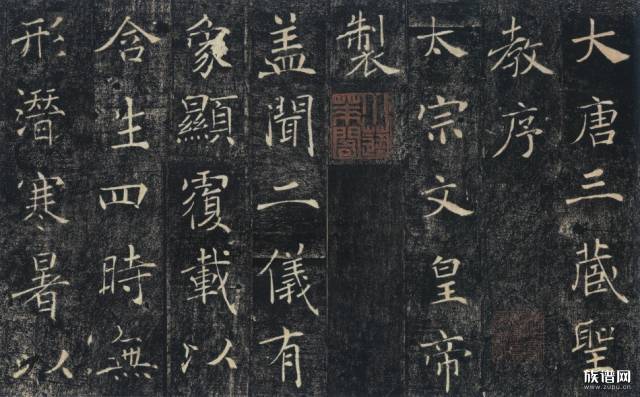 大唐三藏聖
教序
太宗文皇帝
製
盖聞二儀有
象顯覆載以
含生四時無
形潛寒暑以
族谱网
www.zupu.cn